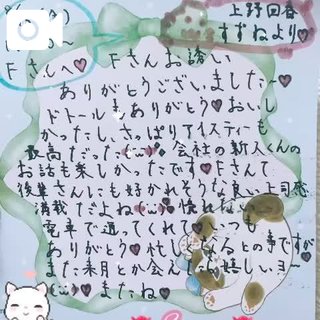 上野回春
すずねより♡
Fさんへ♡ Fさんお誘い
ありがとうございました〜♡
ドトールもありがとう♡おいし
かったし、さっぱりアイスティーも
最高だった 会社の新人くんの
お話も楽しかったです♡Fさんて
後輩さんにも好かれそうな良い上司感
満載だよね
電車で通ってくれて
ありがとう♡忙しくなるとの事ですが
また来月とか会えたら嬉しいヨ〜
またね♡